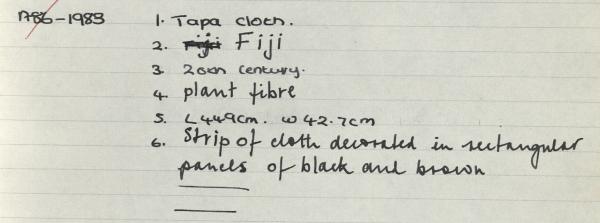 A86-1983 1. Tapa cloth.
2. Fiji Fiji
3. 20th century.
4. plant fibre
5. L449cm. W42.7cm
6. Strip of cloth decorated in rectangular
panels of black and brown